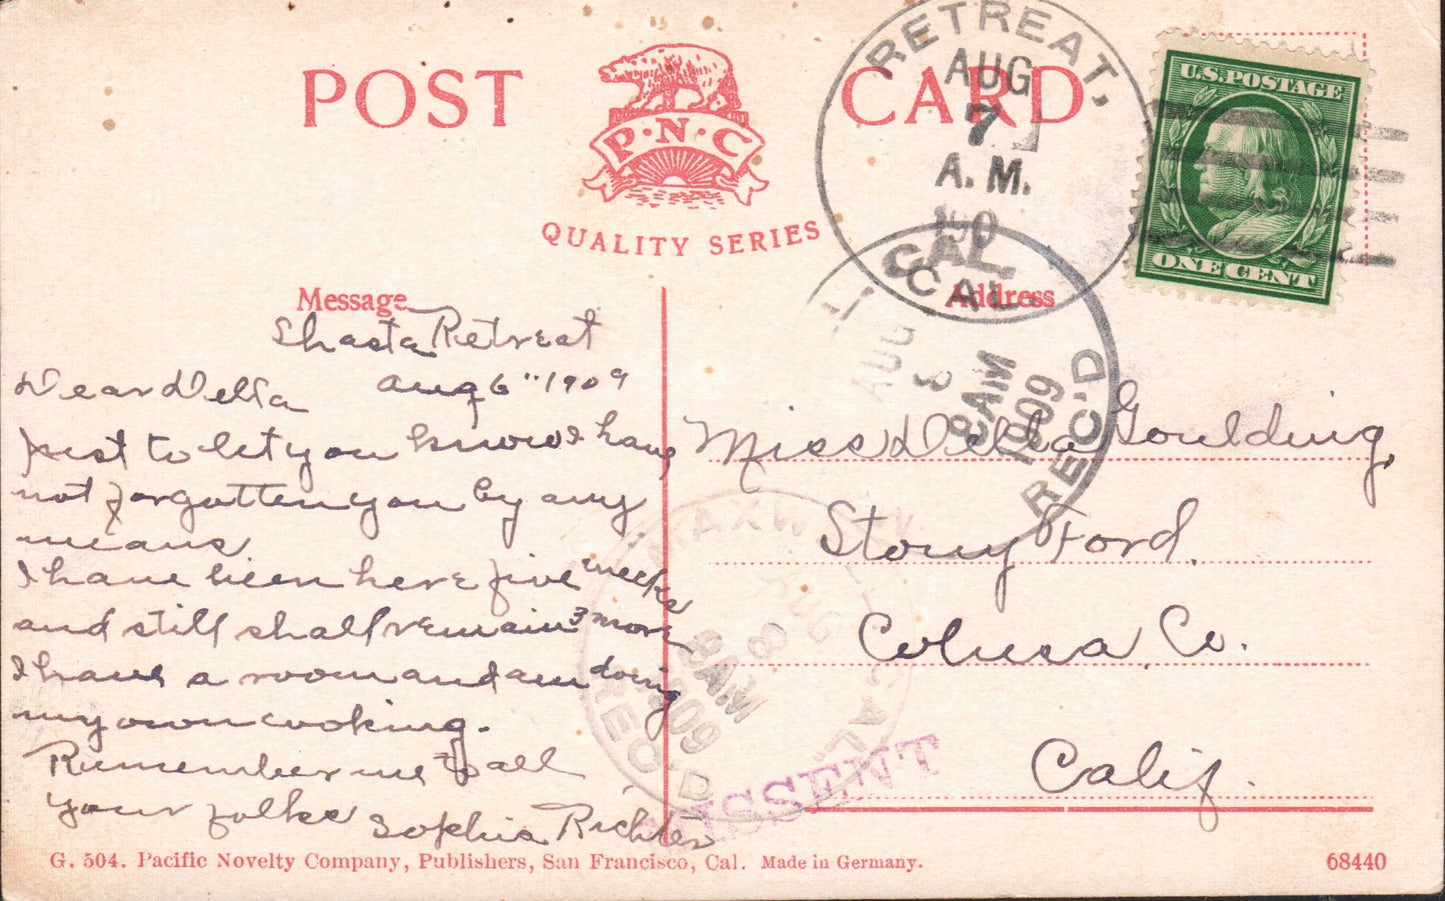 POST CARD
P·N·C
QUALITY SERIES
RETREAT,
AUG
7
A.M.
190
CAL.
U.S. POSTAGE
ONE CENT
Message
Shasta Retreat
Aug 6" 1909
Dear Della
just to let you know I have
not forgotten you by any
means
I have been here five weeks
and still shall remain 3 more
I have a room and am doing
my own cooking.
Remember me to all
your folks Sophia Richter
Address
Miss Della Goulding,
Stony Ford.
Colusa Co.
Calif.
CAL.
AUG
8
8 AM
1909
REC'D
MAXWELL, CAL.
AUG
8
9 AM
1909
REC'D
MISSENT
G. 504. Pacific Novelty Company, Publishers, San Francisco, Cal. Made in Germany.
68440